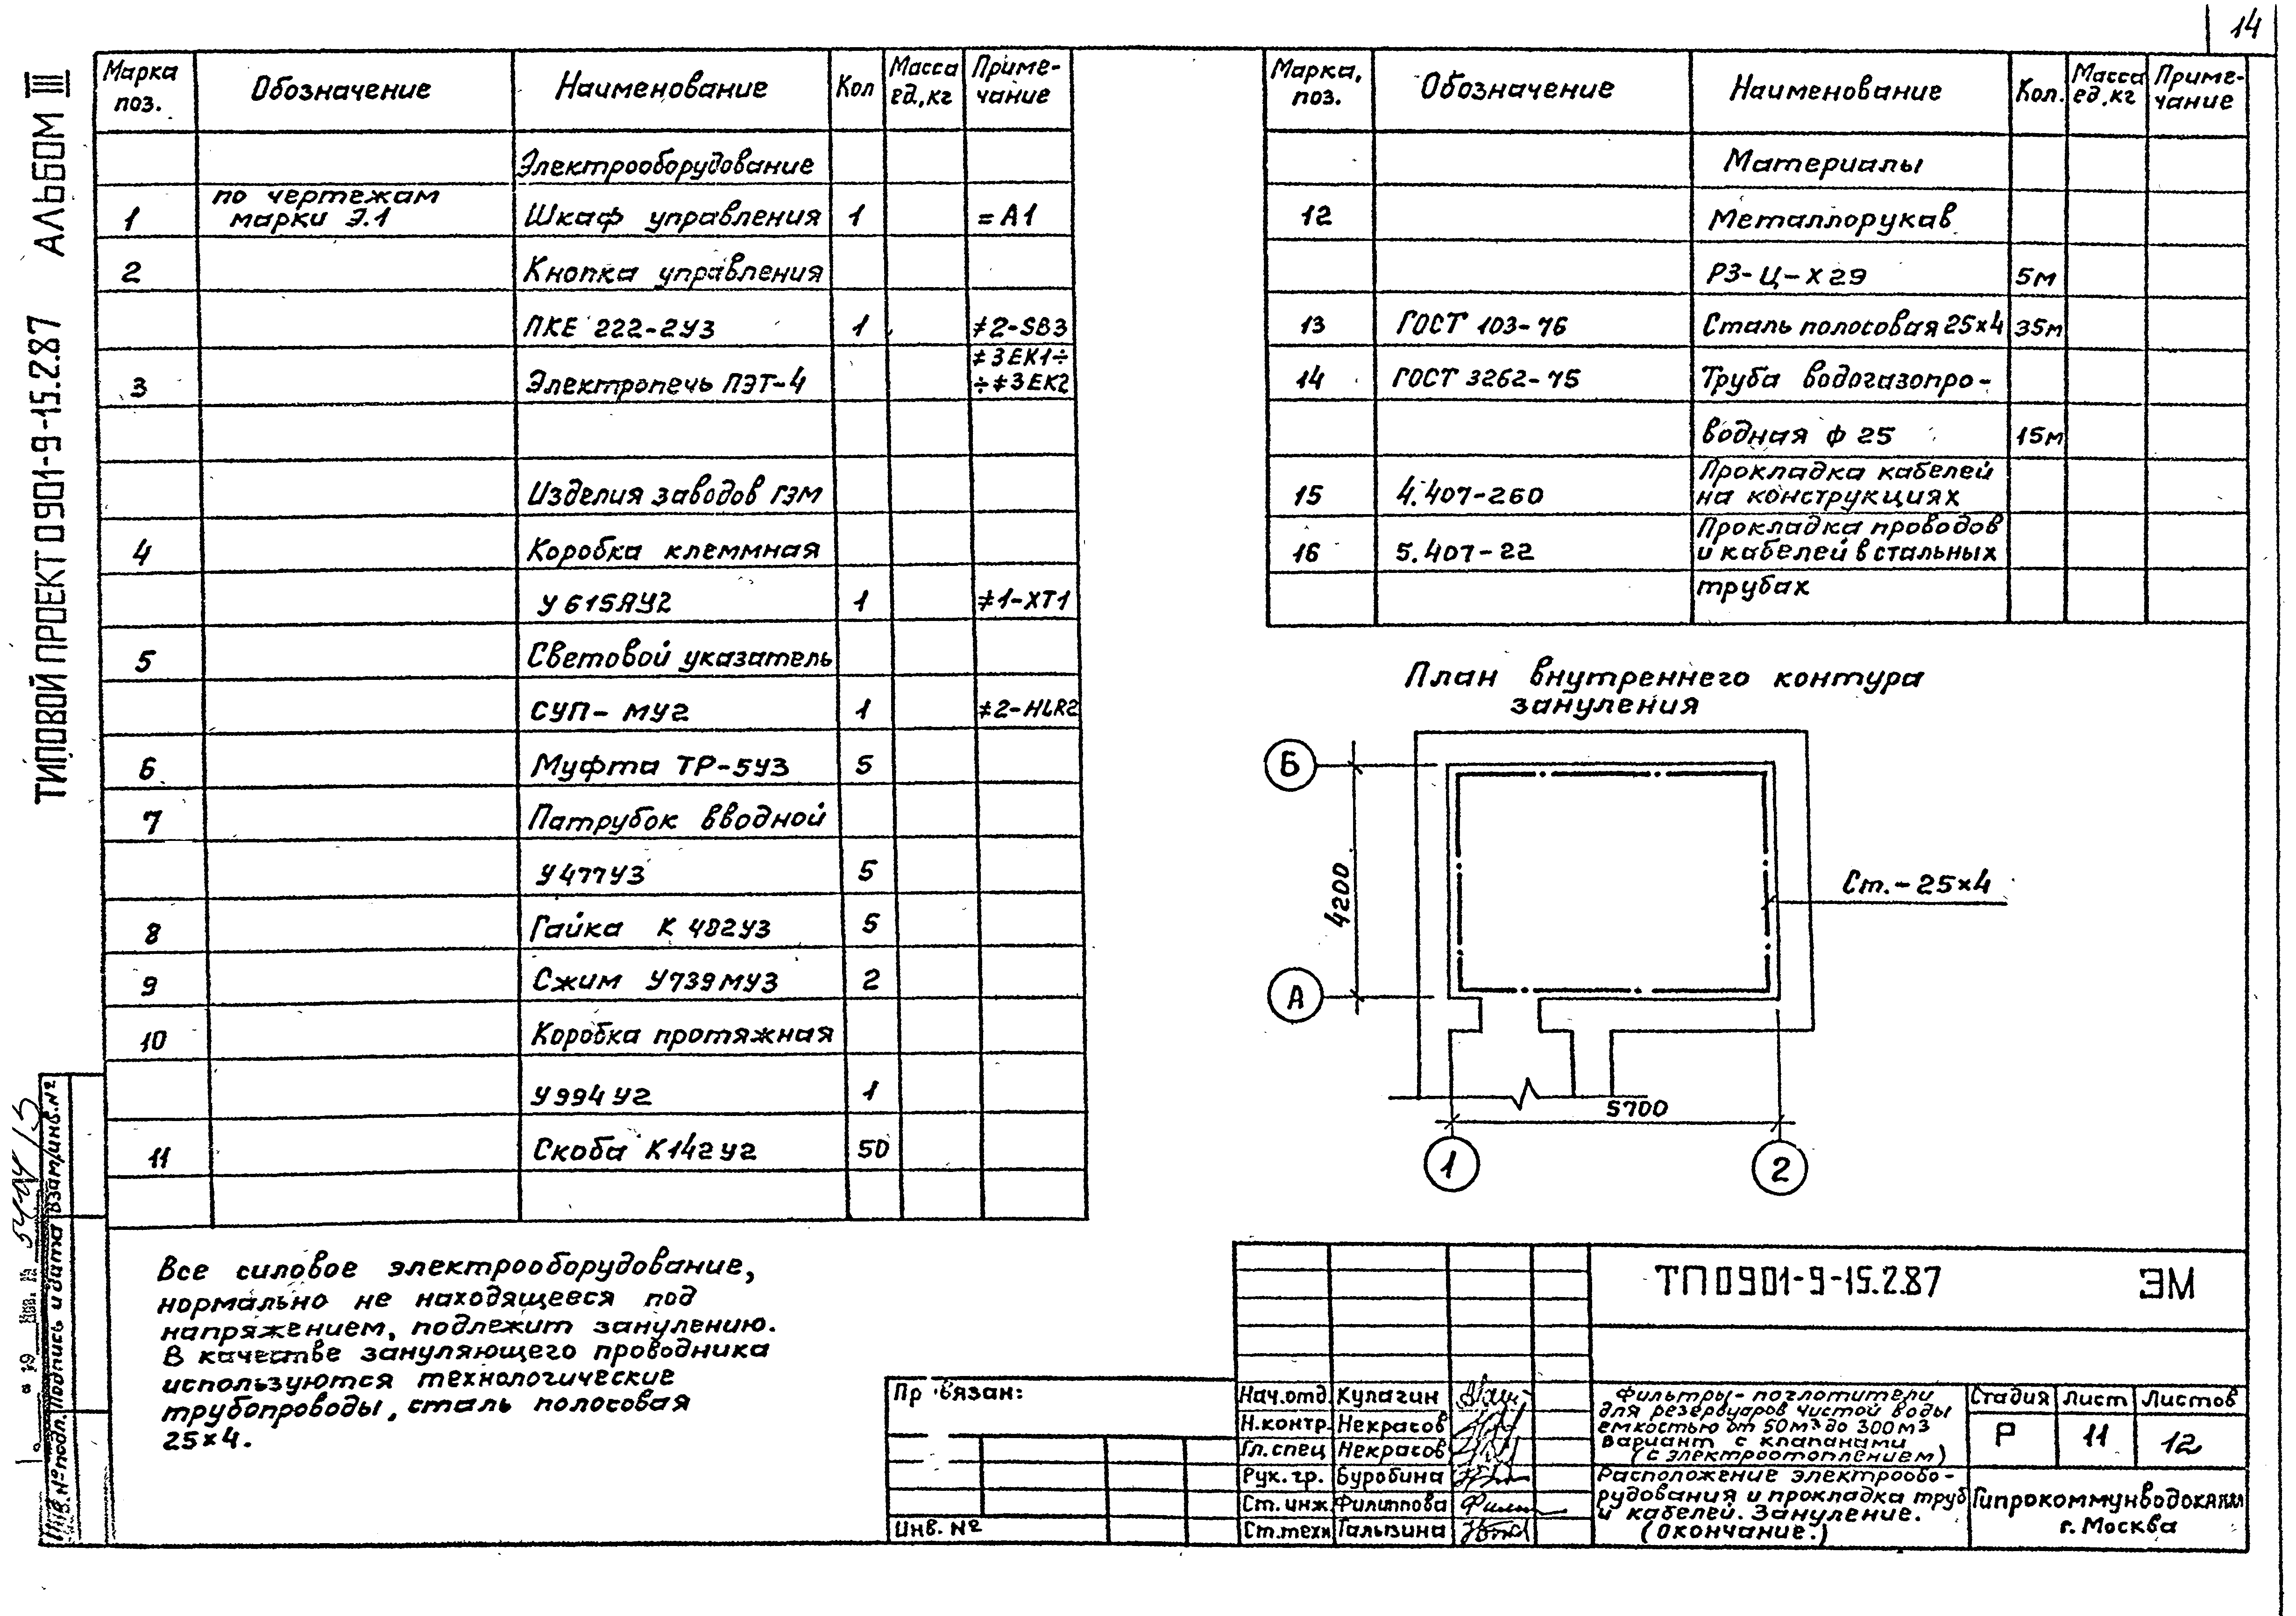 14
ТИПОВОЙ ПРОЕКТ 0901-9-15.2.87 АЛЬБОМ III
Марка поз. Обозначение Наименование Кол Масса ед,кг Приме-чание
Электрооборудование
1 по чертежам марки Э.1 Шкаф управления 1 =А1
2 Кнопка управления
ПКЕ 222-2У3 1 ≠2-SB3
3 Электропечь ПЭТ-4 ≠3ЕК1÷ ÷≠3ЕК2
Изделия заводов ГЭМ
4 Коробка клеммная
У615АУ2 1 ≠1-ХТ1
5 Световой указатель
СУП-МУ2 1 ≠2-HLR2
6 Муфта ТР-5У3 5
7 Патрубок вводной
У477У3 5
8 Гайка К 482У3 5
9 Сжим У739МУ3 2
10 Коробка протяжная
У994У2 1
11 Скоба К142У2 50
Марка, поз. Обозначение Наименование Кол. Масса ед,кг Приме-чание
Материалы
12 Металлорукав
РЗ-Ц-Х29 5м
13 ГОСТ 103-76 Сталь полосовая 25×4 35м
14 ГОСТ 3262-75 Труба водогазопро-
водная ф 25 15м
15 4.407-260 Прокладка кабелей
на конструкциях
16 5.407-22 Прокладка проводов
и кабелей в стальных
трубах
План внутреннего контура
зануления
Б
4200
Ст.-25×4
А
5700
1 2
Все силовое электрооборудование,
нормально не находящееся под
напряжением, подлежит занулению.
В качестве зануляющего проводника
используются технологические
трубопроводы, сталь полосовая
25×4.
Инв.№подл. Подпись и дата Взам.инв.№
Пр вязан:
Инв. №
ТП 0901-9-15.2.87 ЭМ
Нач.отд. Кулагин
Н.контр. Некрасов
Гл.спец Некрасов
Рук.гр. Буробина
Ст.инж. Филиппова
Ст.техн Галызина
Фильтры-поглотители
для резервуаров чистой воды
емкостью от 50м³ до 300м³
вариант с клапанами
(с электроотоплением)
Стадия Лист Листов
Р 11 12
Расположение электрообо-
рудования и прокладка труб
и кабелей. Зануление.
(Окончание.)
Гипрокоммунводоканал
г. Москва